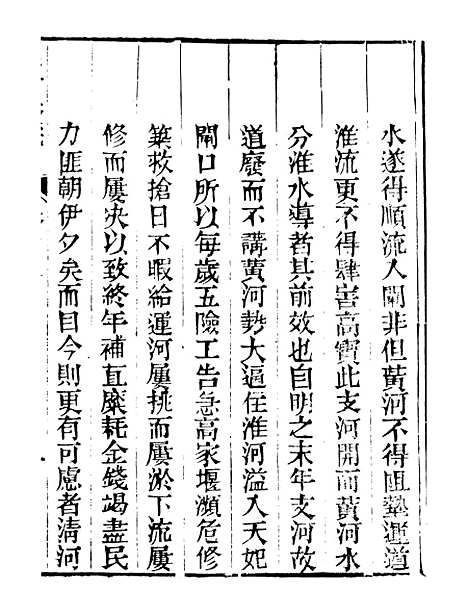 水遂得順流入閘非但黄河不得阻塾運道
淮流更不得肆害高寳此支河開而黄河水
分淮水導者其前效也自明之末年支河故
道廢而不講黄河勢大逼住淮河溢入天妃
閘口所以每歲五險工告急高家堰瀕危修
築救搶日不暇給運河屢挑而屢淤下流屢
修而屢决以致終年補直糜耗金錢竭盡民
力匪朝伊夕矣而目今則更有可慮者清河